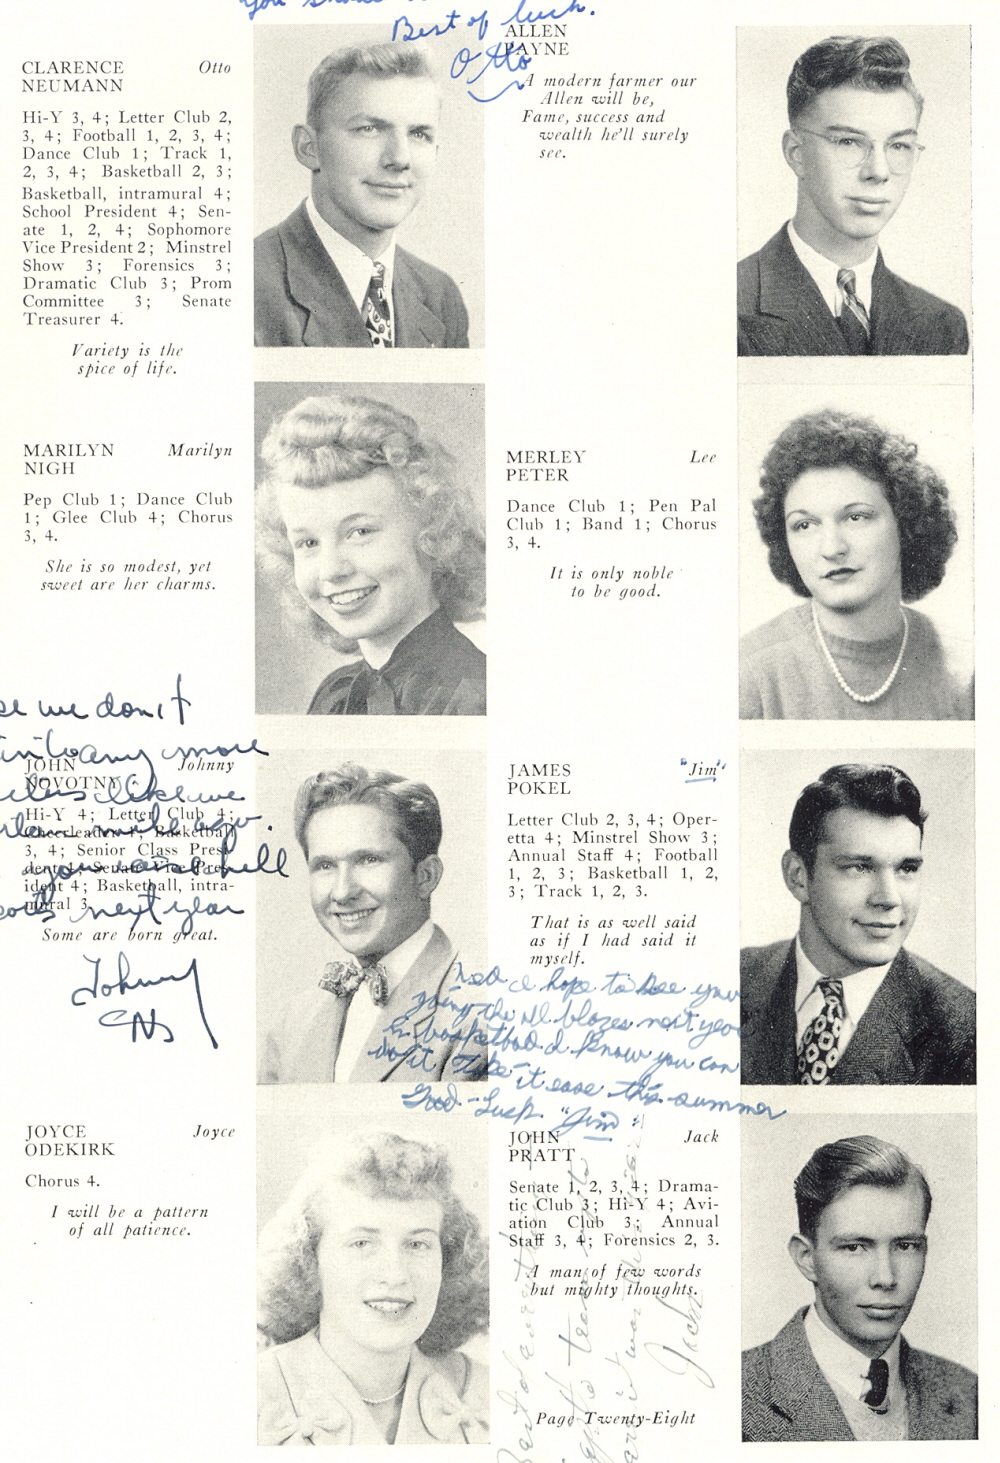 you
Best of luck.
Otto
CLARENCE Otto
NEUMANN
Hi-Y 3, 4; Letter Club 2,
3, 4; Football 1, 2, 3, 4;
Dance Club 1; Track 1,
2, 3, 4; Basketball 2, 3;
Basketball, intramural 4;
School President 4; Sen-
ate 1, 2, 4; Sophomore
Vice President 2; Minstrel
Show 3; Forensics 3;
Dramatic Club 3; Prom
Committee 3; Senate
Treasurer 4.
Variety is the
spice of life.
MARILYN Marilyn
NIGH
Pep Club 1; Dance Club
1; Glee Club 4; Chorus
3, 4.
She is so modest, yet
sweet are her charms.
we don't
any more
like we
JOHN Johnny
NOVOTNY
Hi-Y 4; Letter Club 4;
Cheerleader 4; Basketball
3, 4; Senior Class Presi-
dent 4; Senate Vice Pres-
ident 4; Basketball, intra-
mural 3.
hell
next year
Some are born great.
Johnny
JOYCE Joyce
ODEKIRK
Chorus 4.
I will be a pattern
of all patience.
ALLEN
PAYNE
A modern farmer our
Allen will be,
Fame, success and
wealth he'll surely
see.
MERLEY Lee
PETER
Dance Club 1; Pen Pal
Club 1; Band 1; Chorus
3, 4.
It is only noble
to be good.
JAMES "Jim"
POKEL
Letter Club 2, 3, 4; Oper-
etta 4; Minstrel Show 3;
Annual Staff 4; Football
1, 2, 3; Basketball 1, 2,
3; Track 1, 2, 3.
That is as well said
as if I had said it
myself.
I hope to see you
going the blazes next year
in basketball I know you can
do it Take it ease this summer
Good-Luck "Jim"
JOHN Jack
PRATT
Senate 1, 2, 3, 4; Drama-
tic Club 3; Hi-Y 4; Avi-
ation Club 3; Annual
Staff 3, 4; Forensics 2, 3.
A man of few words
but mighty thoughts.
Jack
Page Twenty-Eight